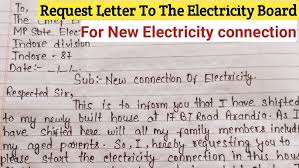 Request Letter To The Electricity Board
For New Electricity connection
To,
The Chief E
MP State Elec
Indore division
Indore - 87
Date:- _/_/_
Sub:- New connection Of Electricity.
Respected Sir,
This is to inform you that I have shifted
to my newly built house at 17 BJ Road Arandia. As I
have shifted here will all my family members includin
my aged parents. So, I, hereby requesting you to
please start the electricity connection in this hous